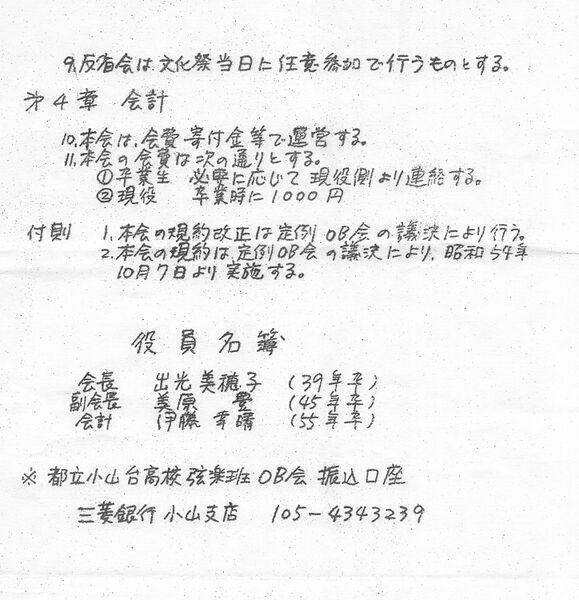 9.反省会は文化祭当日に任意参加で行うものとする。
第4章 会計
10.本会は、会費 寄付金等で運営する。
11.本会の会費は次の通りとする。
①卒業生 必要に応じて 現役側より連絡する。
②現役 卒業時に1000円
付則 1.本会の規約改正は定例OB会の議決により行う。
2.本会の規約は、定例OB会の議決により、昭和54年
10月7日より実施する。
役員名簿
会長 出光美穂子 (39年卒)
副会長 美原 豊 (45年卒)
会計 伊藤幸晴 (55年卒)
※都立小山台高校弦楽班OB会 振込口座
三菱銀行小山支店 105-4343239